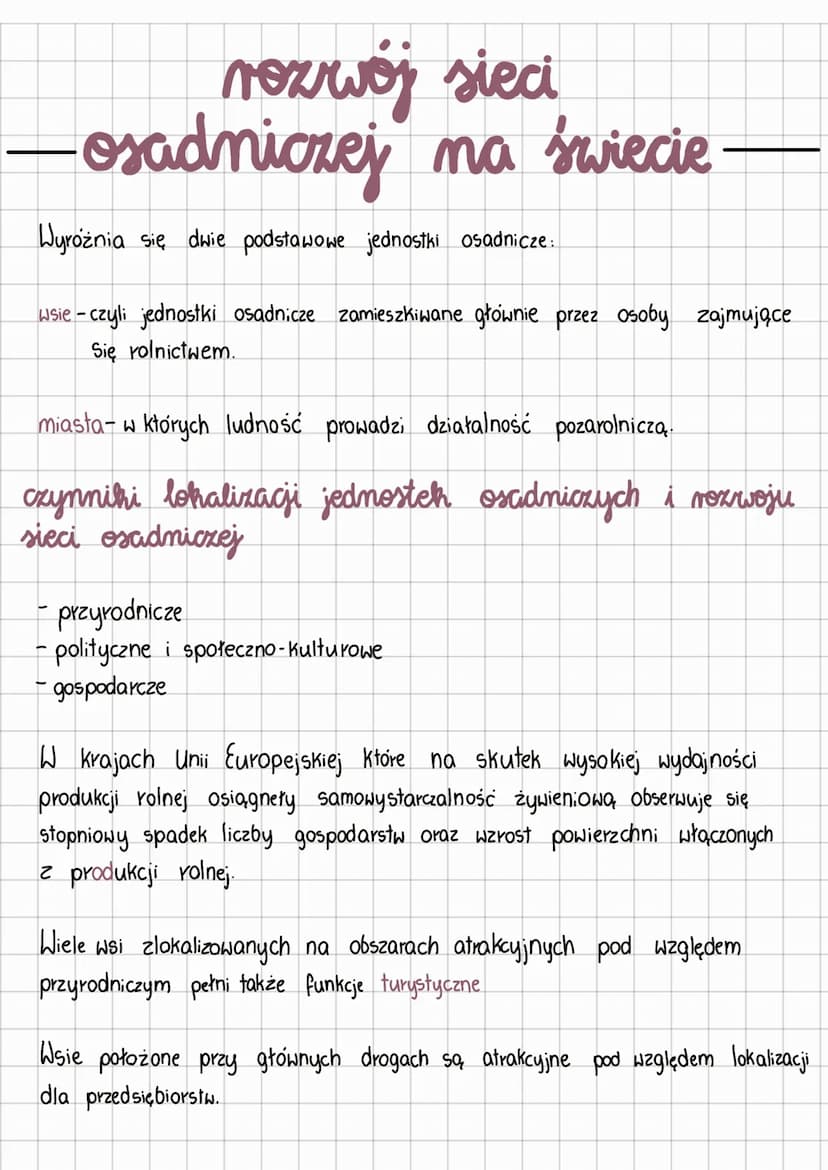 rozwój sieci
osadniczej na świecie
Wyróżnia się dwie podstawowe jednostki osadnicze:
wsie - czyli jednostki osadnicze zamieszkiwane głównie przez osoby zajmujące
się rolnictwem.
miasta - w których ludność prowadzi działalność pozarolniczą.
czynniki lokalizacji jednostek osadniczych i rozwoju
sieci osadniczej
- przyrodnicze
- polityczne i społeczno-kulturowe
- gospodarcze
W krajach Unii Europejskiej które na skutek wysokiej wydajności
produkcji rolnej osiągneły samowystarczalność żywieniową obserwuje się
stopniowy spadek liczby gospodarstw oraz wzrost powierzchni włączonych
z produkcji rolnej.
Wiele wsi zlokalizowanych na obszarach atrakcyjnych pod względem
przyrodniczym pełni także funkcje turystyczne
Wsie położone przy głównych drogach są atrakcyjne pod względem lokalizacji
dla przedsiębiorstw.